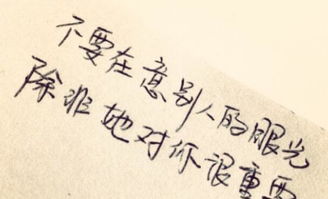 不要在意别人的眼光
除非她对你很重要